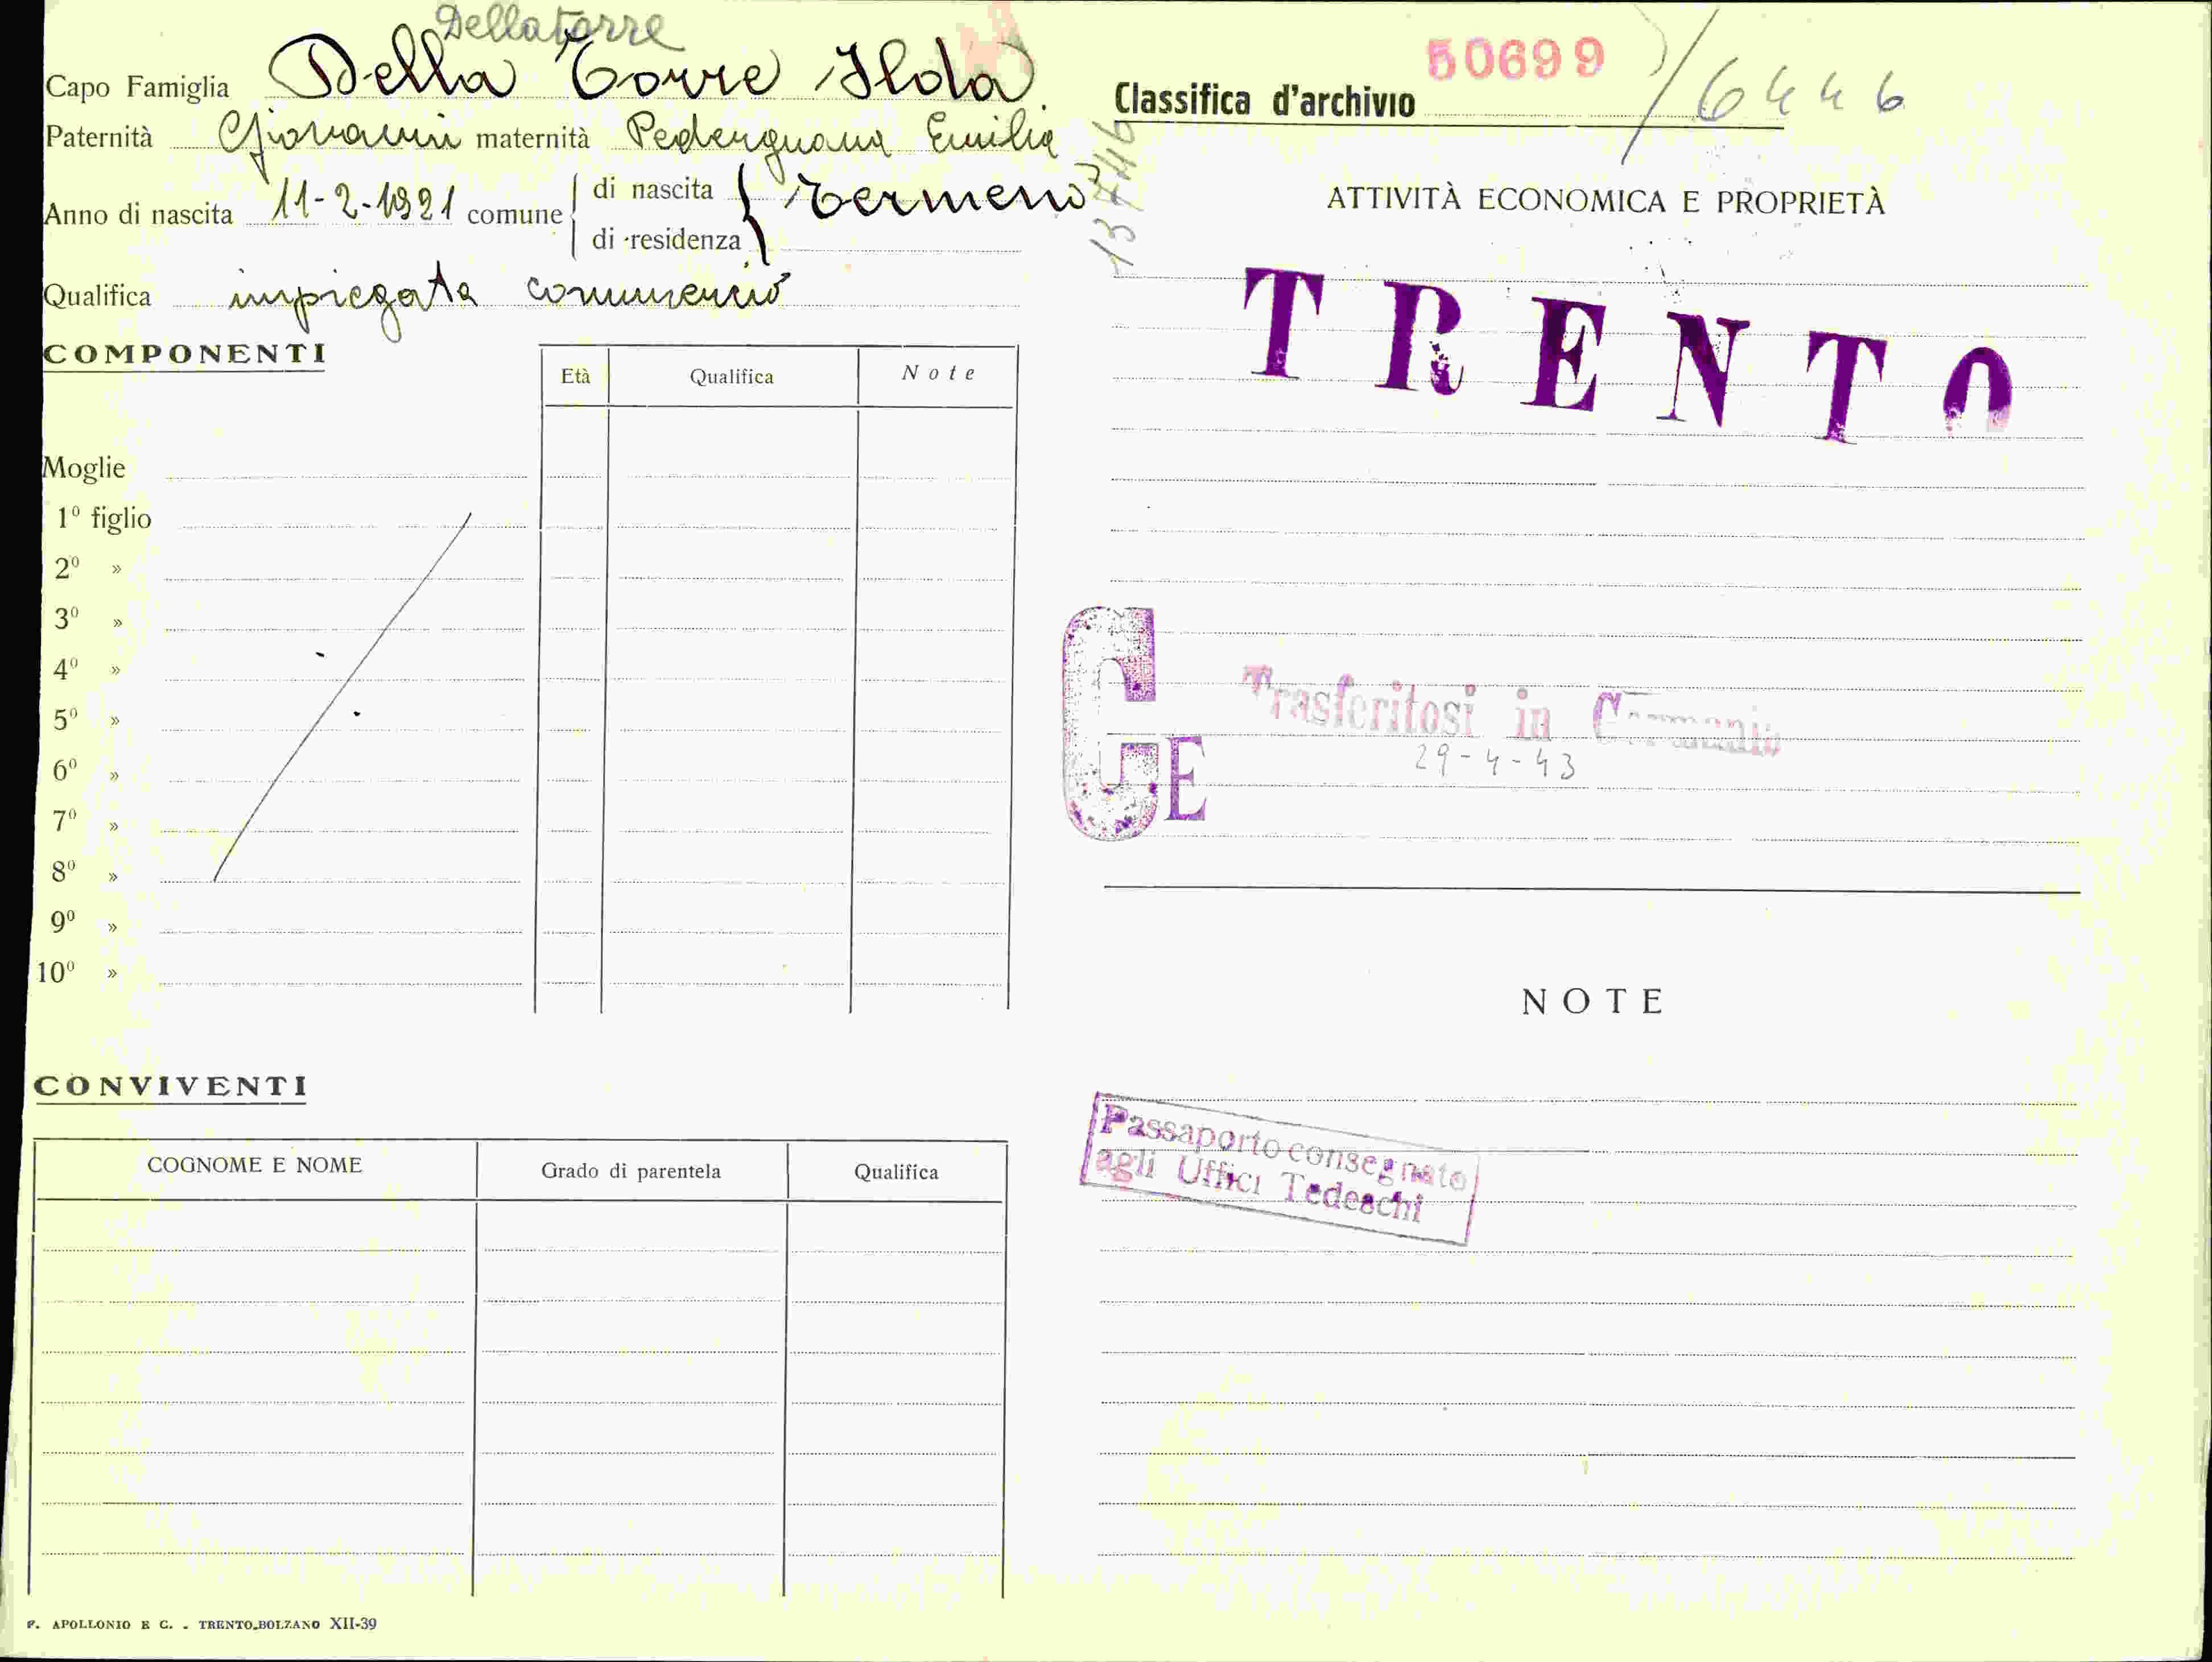 Dellatorre
Capo Famiglia Della Torre Ilda
Paternità Giovanni maternità Pedergnana Emilia
Anno di nascita 11-2-1921 comune di nascita Termeno
di residenza
Qualifica impiegata commercio
COMPONENTI
Età Qualifica Note
Moglie
1º figlio
2º »
3º »
4º »
5º »
6º »
7º »
8º »
9º »
10º »
CONVIVENTI
COGNOME E NOME Grado di parentela Qualifica
F. APOLLONIO E C. - TRENTO-BOLZANO XII-39
Classifica d'archivio 50699 / 6446
137746
ATTIVITÀ ECONOMICA E PROPRIETÀ
TRENTO
GE
Trasferitosi in Germania
29-4-43
NOTE
Passaporto consegnato
agli Uffici Tedeschi